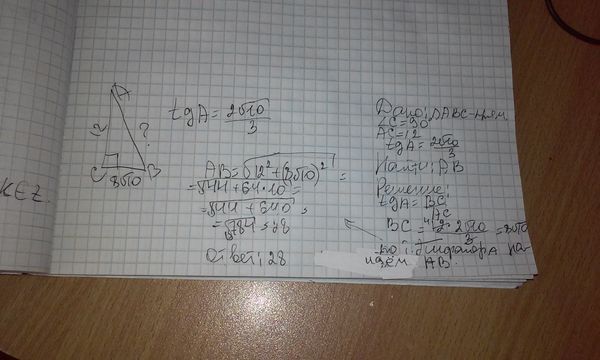 A
12
?
C
8√10
B
tgA = 2√10/3
AB = √12² + (8√10)² =
= √144 + 64·10 =
= √144 + 640 =
= √784 = 28
Ответ: 28
Дано: ΔABC-прям.
∠C = 90
AC = 12
tgA = 2√10/3
Найти: AB
Решение:
tgA = BC/AC
BC = 12 · 2√10/3 = 8√10
по т. Пифагора на-
йдём AB.